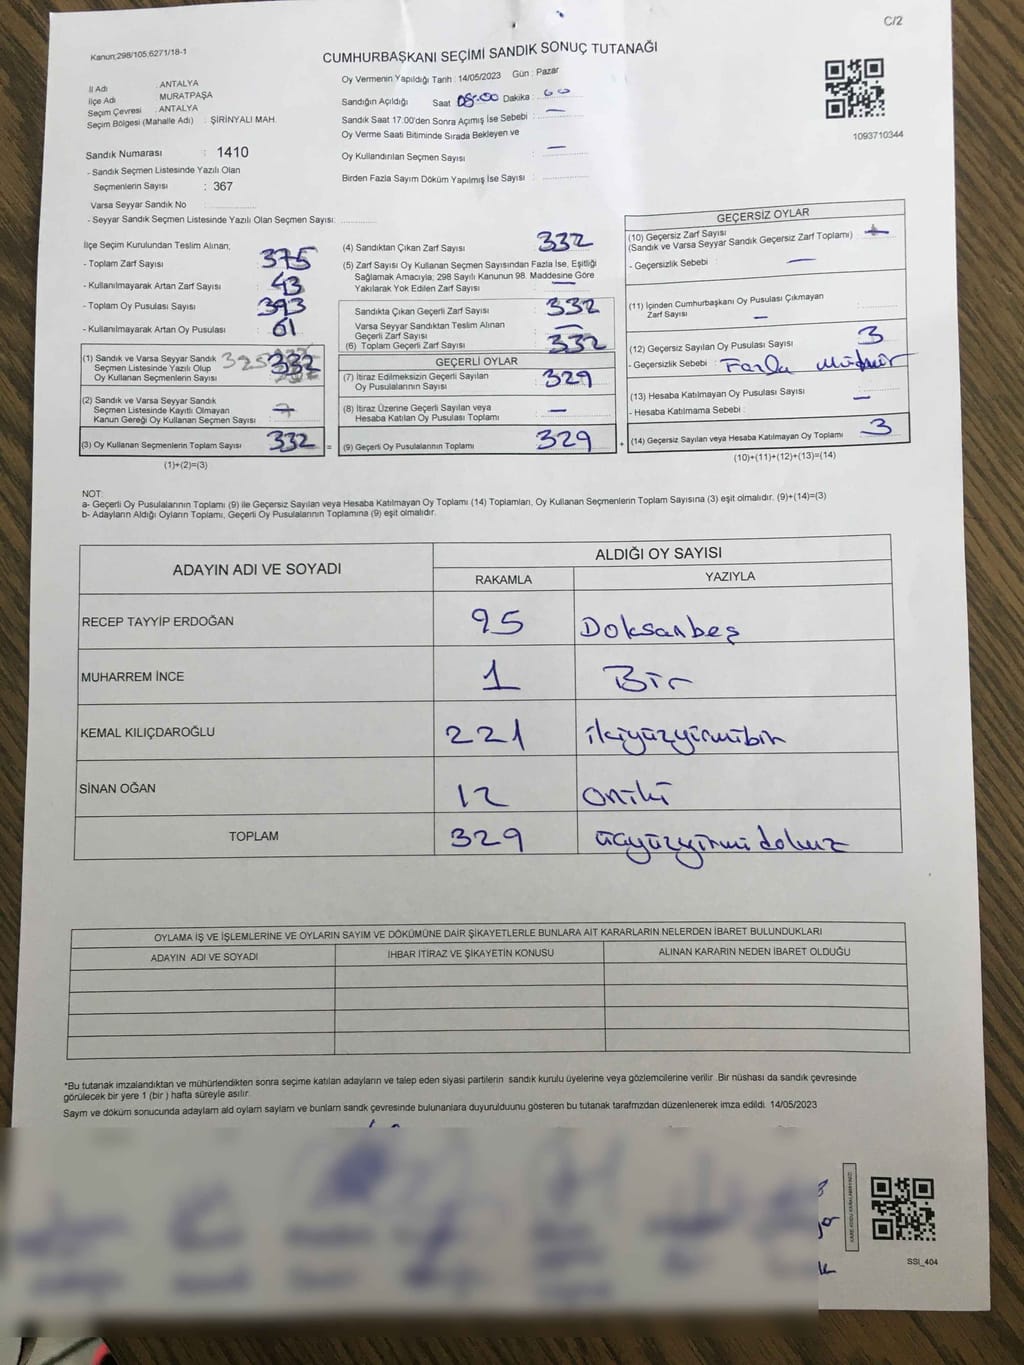 C/2
Kanun:298/105,6271/18-1
CUMHURBAŞKANI SEÇİMİ SANDIK SONUÇ TUTANAĞI
İl Adı : ANTALYA
İlçe Adı : MURATPAŞA
Seçim Çevresi : ANTALYA
Seçim Bölgesi (Mahalle Adı) : ŞİRİNYALI MAH.
Oy Vermenin Yapıldığı Tarih : 14/05/2023 Gün : Pazar
Sandığın Açıldığı Saat 08:00 Dakika : 00
Sandık Saat 17:00'den Sonra Açımış İse Sebebi : —
Oy Verme Saati Bitiminde Sırada Bekleyen ve
Oy Kullandırılan Seçmen Sayısı : —
Birden Fazla Sayım Döküm Yapılmış İse Sayısı :
1093710344
Sandık Numarası : 1410
- Sandık Seçmen Listesinde Yazılı Olan
Seçmenlerin Sayısı : 367
Varsa Seyyar Sandık No :
- Seyyar Sandık Seçmen Listesinde Yazılı Olan Seçmen Sayısı:
İlçe Seçim Kurulundan Teslim Alınan;
- Toplam Zarf Sayısı : 375
- Kullanılmayarak Artan Zarf Sayısı : 43
- Toplam Oy Pusulası Sayısı : 393
- Kullanılmayarak Artan Oy Pusulası : 61
(1) Sandık ve Varsa Seyyar Sandık
Seçmen Listesinde Yazılı Olup
Oy Kullanan Seçmenlerin Sayısı : 332
(2) Sandık ve Varsa Seyyar Sandık
Seçmen Listesinde Kayıtlı Olmayan
Kanun Gereği Oy Kullanan Seçmen Sayısı :
(3) Oy Kullanan Seçmenlerin Toplam Sayısı 332 =
(1)+(2)=(3)
(4) Sandıktan Çıkan Zarf Sayısı : 332
(5) Zarf Sayısı Oy Kullanan Seçmen Sayısından Fazla İse, Eşitliği
Sağlamak Amacıyla; 298 Sayılı Kanunun 98. Maddesine Göre
Yakılarak Yok Edilen Zarf Sayısı : —
Sandıkta Çıkan Geçerli Zarf Sayısı : 332
Varsa Seyyar Sandıktan Teslim Alınan
Geçerli Zarf Sayısı : —
(6) Toplam Geçerli Zarf Sayısı : 332
GEÇERLİ OYLAR
(7) İtiraz Edilmeksizin Geçerli Sayılan
Oy Pusulalarının Sayısı : 329
(8) İtiraz Üzerine Geçerli Sayılan veya
Hesaba Katılan Oy Pusulası Toplamı : —
(9) Geçerli Oy Pusulalarının Toplamı : 329 +
GEÇERSİZ OYLAR
(10) Geçersiz Zarf Sayısı
(Sandık ve Varsa Seyyar Sandık Geçersiz Zarf Toplamı) :
- Geçersizlik Sebebi : —
(11) İçinden Cumhurbaşkanı Oy Pusulası Çıkmayan
Zarf Sayısı : —
(12) Geçersiz Sayılan Oy Pusulası Sayısı : 3
- Geçersizlik Sebebi : Fazla Mühür
(13) Hesaba Katılmayan Oy Pusulası Sayısı : —
- Hesaba Katılmama Sebebi :
(14) Geçersiz Sayılan veya Hesaba Katılmayan Oy Toplamı : 3
(10)+(11)+(12)+(13)=(14)
NOT:
a- Geçerli Oy Pusulalarının Toplamı (9) ile Geçersiz Sayılan veya Hesaba Katılmayan Oy Toplamı (14) Toplamları, Oy Kullanan Seçmenlerin Toplam Sayısına (3) eşit olmalıdır. (9)+(14)=(3)
b- Adayların Aldığı Oyların Toplamı, Geçerli Oy Pusulalarının Toplamına (9) eşit olmalıdır.
ADAYIN ADI VE SOYADI ALDIĞI OY SAYISI
RAKAMLA YAZIYLA
RECEP TAYYİP ERDOĞAN 95 Doksanbeş
MUHARREM İNCE 1 Bir
KEMAL KILIÇDAROĞLU 221 ikiyüzyirmibir
SİNAN OĞAN 12 oniki
TOPLAM 329 üçyüzyirmidokuz
OYLAMA İŞ VE İŞLEMLERİNE VE OYLARIN SAYIM VE DÖKÜMÜNE DAİR ŞİKAYETLERLE BUNLARA AİT KARARLARIN NELERDEN İBARET BULUNDUKLARI
ADAYIN ADI VE SOYADI İHBAR İTİRAZ VE ŞİKAYETİN KONUSU ALINAN KARARIN NEDEN İBARET OLDUĞU
*Bu tutanak imzalandıktan ve mühürlendikten sonra seçime katılan adayların ve talep eden siyasi partilerin sandık kurulu üyelerine veya gözlemcilerine verilir .Bir nüshası da sandık çevresinde
görülecek bir yere 1 (bir ) hafta süreyle asılır.
Sayım ve döküm sonucunda adaylam ald oylam saylam ve bunlam sandk çevresinde bulunanlara duyurulduunu gösteren bu tutanak tarafmzdan düzenlenerek imza edildi. 14/05/2023
SSI_404